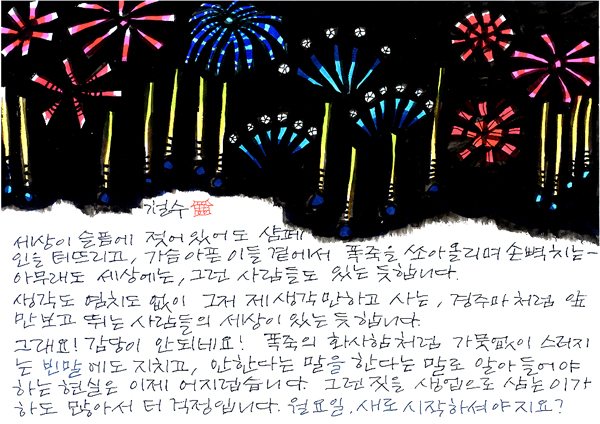 철수
세상이 슬픔에 젖어있어도 샴페
인을 터뜨리고, 가슴아픈이들 곁에서 폭죽을 쏘아올리며 손뼉치는-
아무래도 세상에는, 그런 사람들도 있는 듯합니다.
생각도 염치도 없이 그저 제 생각만하고 사는, 경주마처럼 앞
만보고 뛰는 사람들의 세상이 있는 듯 합니다.
그래요! 감당이 안되네요! 폭죽의 화사함처럼 가뭇없이 스러지
는 빈말에도 지치고, 안한다는 말을 한다는 말로 알아들어야
하는 현실은 이제 어지럽습니다. 그런 짓을 생업으로 삼는 이가
하도 많아서 더 걱정입니다. 월요일, 새로 시작하셔야지요?